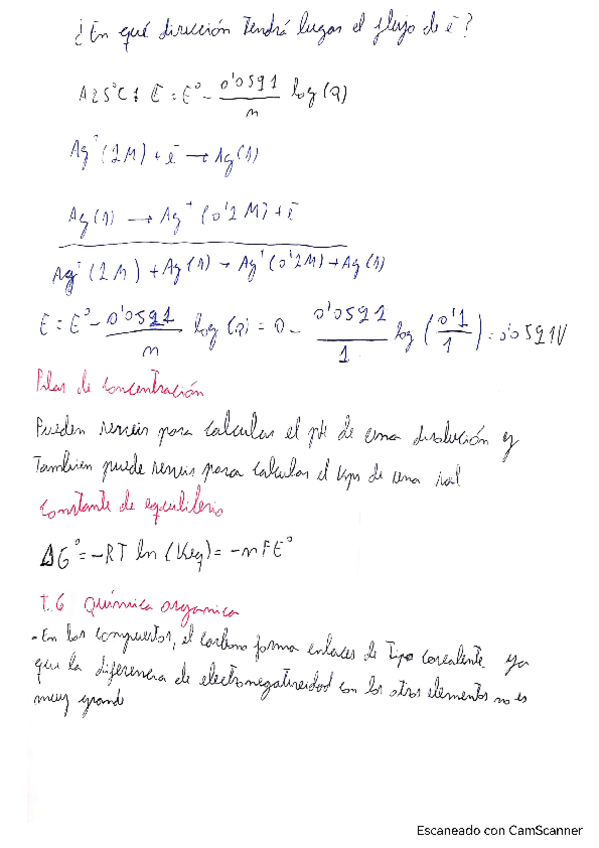 ¿En qué dirección tendrá lugar el flujo de ē?
A 25°C: E = E° - 0'0591/n log (Q)
Ag⁺ (1M) + ē → Ag(s)
Ag(s) → Ag⁺ (0'1M) + ē
Ag⁺ (1M) + Ag(s) → Ag⁺ (0'1M) + Ag(s)
E = E° - 0'0591/n log (Q) = 0 - 0'0591/1 log (0'1/1) = 0'0591V
Pilas de concentración
Pueden servir para calcular el pH de una disolución y
también puede servir para calcular el Kps de una sal
Constante de equilibrio
ΔG° = -RT ln (Keq) = -nFE°
T.6 Química organica
- En los compuestos, el carbono forma enlaces de tipo covalente ya
que la diferencia de electronegatividad con los otros elementos no es
muy grande
Escaneado con CamScanner